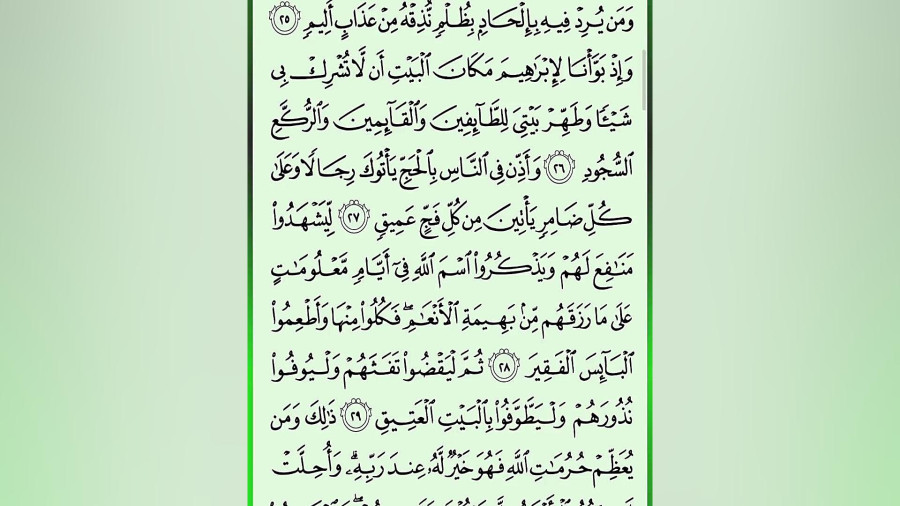 وَمَن يُرِدْ فِيهِ بِإِلْحَادٍۭ بِظُلْمٍ نُّذِقْهُ مِنْ عَذَابٍ أَلِيمٍ ٢٥
وَإِذْ بَوَّأْنَا لِإِبْرَٰهِيمَ مَكَانَ ٱلْبَيْتِ أَن لَّا تُشْرِكْ بِى
شَيْـًٔا وَطَهِّرْ بَيْتِىَ لِلطَّآئِفِينَ وَٱلْقَآئِمِينَ وَٱلرُّكَّعِ
ٱلسُّجُودِ ٢٦ وَأَذِّن فِى ٱلنَّاسِ بِٱلْحَجِّ يَأْتُوكَ رِجَالًا وَعَلَىٰ
كُلِّ ضَامِرٍ يَأْتِينَ مِن كُلِّ فَجٍّ عَمِيقٍ ٢٧ لِّيَشْهَدُوا۟
مَنَـٰفِعَ لَهُمْ وَيَذْكُرُوا۟ ٱسْمَ ٱللَّهِ فِىٓ أَيَّامٍ مَّعْلُومَـٰتٍ
عَلَىٰ مَا رَزَقَهُم مِّنۢ بَهِيمَةِ ٱلْأَنْعَـٰمِ ۖ فَكُلُوا۟ مِنْهَا وَأَطْعِمُوا۟
ٱلْبَآئِسَ ٱلْفَقِيرَ ٢٨ ثُمَّ لْيَقْضُوا۟ تَفَثَهُمْ وَلْيُوفُوا۟
نُذُورَهُمْ وَلْيَطَّوَّفُوا۟ بِٱلْبَيْتِ ٱلْعَتِيقِ ٢٩ ذَٰلِكَ وَمَن
يُعَظِّمْ حُرُمَـٰتِ ٱللَّهِ فَهُوَ خَيْرٌ لَّهُۥ عِندَ رَبِّهِۦ ۗ وَأُحِلَّتْ